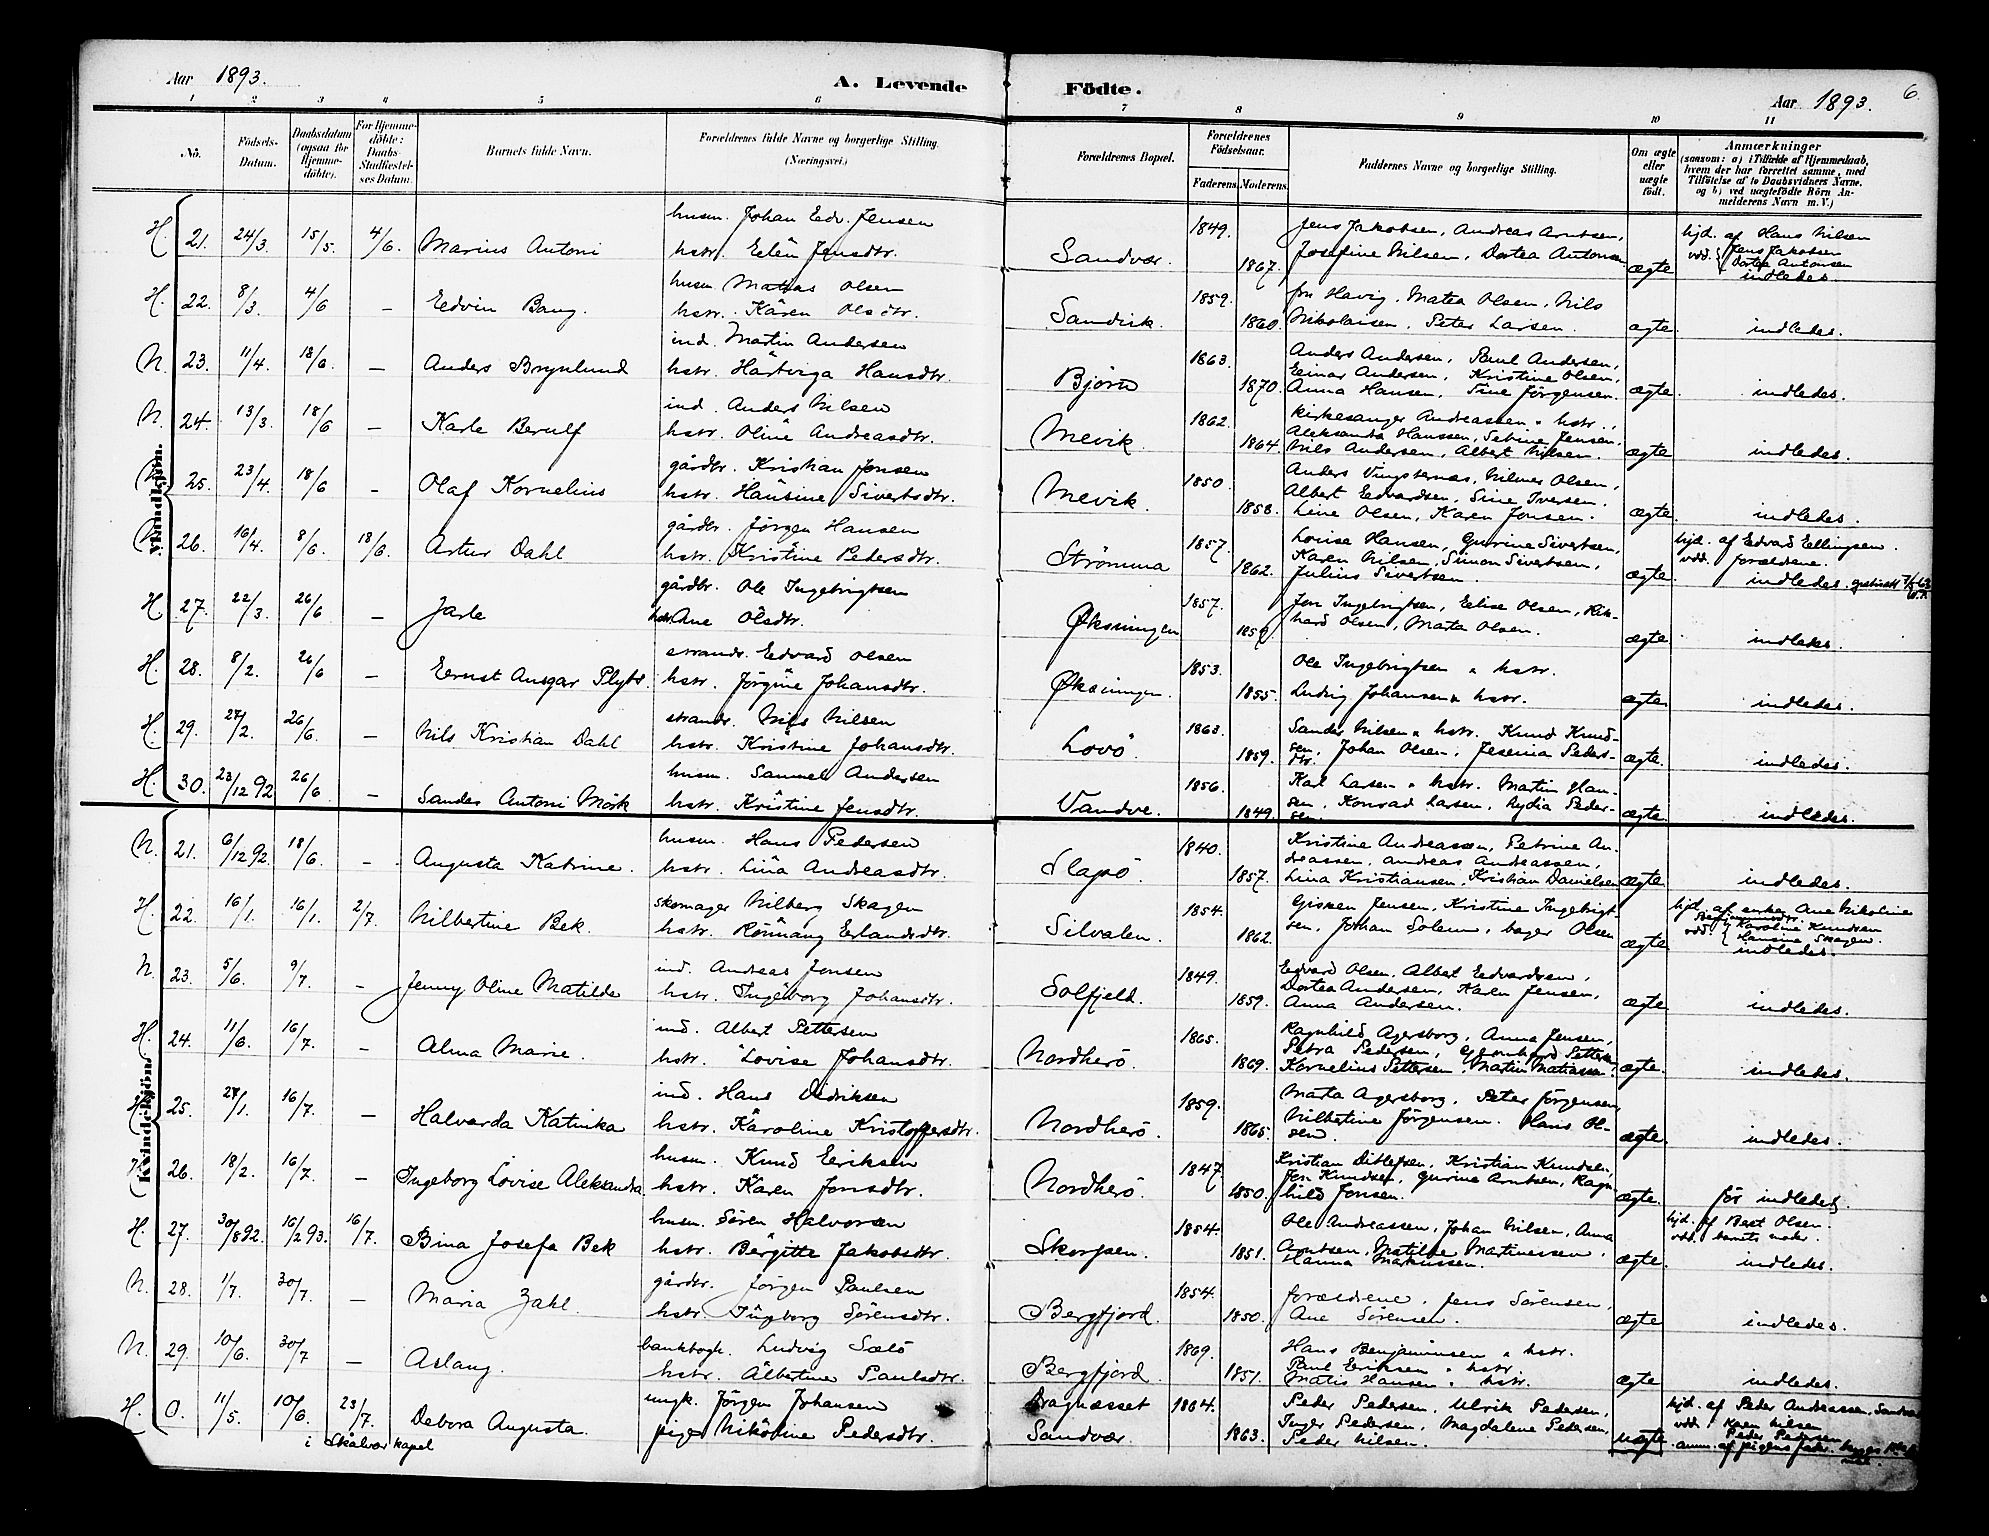 Aar 1893. A. Levende Födte. Aar 1893. 6.
1 2 3 4 5 6 7 8 9 10 11
No. Födsels-Datum. Daabsdatum (ogsaa for Hjemme-döbte). For Hjemme-döbte: Daabs-Stadfæstel-ses Datum. Barnets fulde Navn. Forældrenes fulde Navne og borgerlige Stilling. (Næringsvei.) Forældrenes Bopæl. Forældrenes Födselsaar. Faderens. Moderens. Faddernes Navne og borgerlige Stilling. Om ægte eller uægte födt. Anmærkninger (saasom: a) i Tilfælde af Hjemmedaab, hvem der har forrettet samme, med Tilföielse af to Daabsvidners Navne. og b) ved uægtefödte Börn An-melderens Navn m. V.)
Mandkjön.
H. 21. 24/3. 15/5. 4/6. Marius Antoni husm. Johan Edv. Jensen
hstr. Elen Jensdtr. Sandvær. 1849. 1867. Jens Jakobsen, Andreas Arntsen,
Josefine Nilsen, Dortea Antonsen ægte hjd. af Hans Nilsen
vdd. Jens Jakobsen
Dortea Antonsen
indledes.
H. 22. 8/3. 4/6 – Edvin Bang. husm. Matias Olsen
hstr. Karen Olsdtr. Sandvik. 1859. 1860. fru Havig, Matea Olsen, Nils
Nikolaisen, Peter Larsen. ægte. indledes.
N. 23. 11/4. 18/6. – Anders Brynlund ind. Martin Andersen
hstr. Hartviga Hansdtr. Bjørn 1863. 1870. Anders Andersen, Paul Andersen,
Einar Andersen, Kristine Olsen,
Anna Hansen, Sine Jörgensen. ægte. indledes.
N. 24. 13/3. 18/6 – Karle Berulf ind. Anders Nilsen
hstr. Oline Andreasdtr. Mevik. 1862. 1864. kirkesanger Andreassen & hstr.,
Aleksandra Hanssen, Sebine Jensen,
Nils Andersen, Albert Nilsen. ægte. indledes.
N. 25. 23/4. 18/6 – Olaf Kornelius gårdbr. Kristian Jonsen
hstr. Hansine Sivertsdtr. Mevik. 1850. 1858. Anders Vingsternæs, Nilmer Olsen,
Albert Edvardsen, Sine Iversen,
Line Olsen, Karen Jonsen. ægte. indledes.
N. 26. 16/4. 8/6. 18/6. Artur Dahl gårdbr. Jörgen Hansen
hstr. Kristine Pedersdtr. Strømma 1857. 1862. Lovise Hansen, Gurine Sivertsen,
Karen Nilsen, Simon Sivertsen,
Julius Sivertsen. ægte. hjd. af Edvard Ellingsen.
vdd. forældrene.
indledes.
H. 27. 22/3. 26/6 – Jarle gårdbr. Ole Ingebrigtsen
hstr. Ane Olsdtr. Øksningen 1857. 1859. Jon Ingebrigtsen, Elise Olsen, Rik-
hard Olsen, Marta Olsen. ægte. indledes.
H. 28. 8/2. 26/6 – Ernst Ansgar Plybr. strandr. Edvard Olsen
hstr. Jörgine Johansdtr. Øksningen. 1853. 1855. Ole Ingebrigtsen & hstr.
Ludvig Johansen & hstr. ægte. indledes.
H. 29. 27/2. 26/6. – Nils Kristian Dahl strandr. Nils Nilsen
hstr. Kristine Johansdtr. Lovö 1863. 1859. Sander Nilsen & hstr. Knud Knud-
sen, Johan Olsen, Jesenia Peders-
dtr. ægte. indledes.
H. 30. 23/12 92 26/6 – Sander Antoni Mörk husm. Samuel Andersen
hstr. Kristine Jensdtr. Vandve. 1856. 1849. Karl Larsen & hstr. Martin Han-
sen, Konrad Larsen, Lydia Peder-
sen. ægte. indledes.
Kvindekjön.
N. 21. 6/12 92. 18/6. – Augusta Katrine. husm. Hans Pedersen
hstr. Lina Andreasdtr. Slapö. 1840. 1857. Kristine Andreassen, Petrine An-
dreassen, Andreas Andreassen,
Lina Kristiansen, Kristian Danielsen ægte. indledes.
H. 22. 16/1. 16/1. 2/7. Nilbertine Bek. skomager Nilberg Skagen
hstr. Rönnaug Erlandsdtr. Silvalen. 1854. 1862. Gisken Jensen, Kristine Ingebrigt-
sen, Johan Solem, bager Olsen ægte hjd. af enken Ane Nikoline
vdd. Karoline Knudsen
Hansine Skagen.
indledes.
N. 23. 5/6. 9/7. – Jenny Oline Matilde ind. Andreas Jonsen
hstr. Ingeborg Johansdtr. Solfjeld. 1849. 1859. Edvard Olsen, Albert Edvardsen,
Dortea Andersen, Karen Jensen,
Anna Andersen. ægte. indledes.
H. 24. 11/6. 16/7. – Alma Marie. ind. Albert Pettersen
hstr. Lovise Johansdtr. Nordherö. 1865. 1869. Ragnhild Agersborg, Anna Jensen,
Petra Pedersen, Pettersen
Kornelius Pettersen, Martin Matiassen. ægte. indledes.
H. 25. 27/1. 16/7. – Halvarda Katinka ind. Hans Didriksen
hstr. Karoline Kristoffersdtr. Nordherö. 1859. 1865. Marta Agersborg, Peter Jörgensen,
Nilbertine Jörgensen. Hans Ol-
sen. ægte. indledes.
26. 18/2. 16/7. – Ingeborg Lovise Aleksandra husm. Knud Eriksen
hstr. Karen Jonsdtr. Nordherö. 1847. 1850. Kristian Ditlefsen, Kristian Knudsen,
Jon Knudsen, Gurine Arntsen, Ragn-
hild Jonsen. ægte. för indledes
H. 27. 30/8 92. 16/2 93. 16/7. Bina Josefa Bek husm. Sören Halvorsen
hstr. Bergitte Jakobsdtr. Skorpen. 1854. 1851. Ole Andreassen, Johan Nilsen, Anna
Arntsen, Matilde Martinussen,
Hanna Markussen. ægte. hjd. af Best Olsen.
vdd. barnets moder.
indledes.
N. 28. 1/7. 30/7. – Maria Zahl. gårdbr. Jörgen Paulsen
hstr. Ingborg Sörensdtr. Bergfjord. 1854. 1850. forældrene, Jens Sörensen,
Ane Sörensen. ægte. indledes.
N. 29. 10/6. 30/7 – Aslaug. bankbogh. Ludvig Salö
hstr. Albertine Paulsdtr. Bergfjord. 1869. 1851. Hans Benjaminsen & hstr.
Paul Eriksen & hstr.
Matis Hansen & hstr. ægte indledes.
H. 0. 11/5. 10/6. 23/7. Debora Augusta. ungk. Jörgen Johansen
pige Nikoline Pedersdtr. Dragnæsset
Sandvær. 1864. 1863. Peder Pedersen, Ulrik Pedersen,
Inger Pedersen, Magdalene Pedersen,
Peder Nilsen. uægte. hjd. af Peder Andreassen, Sandvær
vdd. Karen Nilsen
Peder Pedersen
anm. af pigens fader.
i Skålvær kapel